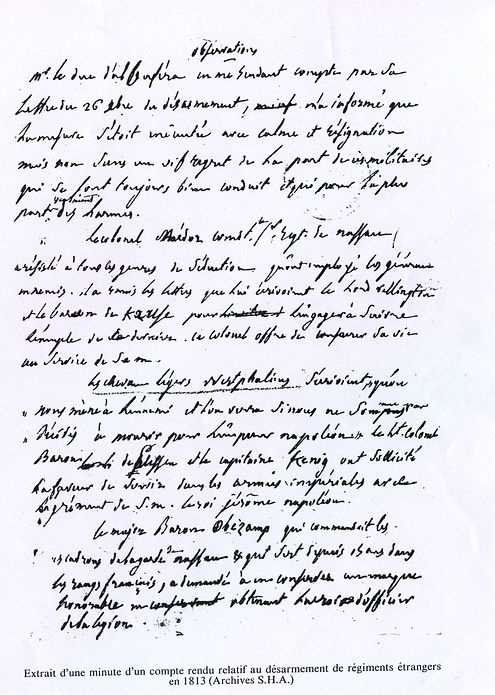 observations
Mr. le duc d'albuféra en me rendant compte par sa
lettre du 26 xbre du désarmement, m'a informé que
la mesure s'étoit exécutée avec calme et résignation
mais non sans un vif regret de la part de ces militaires
qui se sont toujours bien conduit et qui pour la plus
part des larmes.
Le colonel Meder comdt. le 1er Regt. de nassau
a résisté à tous les genres de séduction qu'ont employé les généraux
ennemis. il a remis les lettres que lui écrivoient le Lord Wellington
et le baron de Kruse pour l'engager à suivre
l'exemple de ce dernier. ce colonel offre de consacrer sa vie
au service de S.M.
Les chevau légers Westphaliens s'écrioient, qu'on
nous mène à l'ennemi et l'on verra si nous ne sommes pas
décidés à mourir pour l'empereur napoléon. le Lt. Colonel
Baron de et le capitaine Kenig ont sollicité
la faveur de servir dans les armées impériales avec
l'agrément de S.M. le roi jérôme napoléon.
Le major Baron Obczamp qui commandait les
escadrons de la garde de nassau et qui sert depuis ans dans
les rangs français, a demandé à conserver une marque
honorable en obtenant la croix d'officier
de la légion.
Extrait d'une minute d'un compte rendu relatif au désarmement de régiments étrangers
en 1813 (Archives S.H.A.)